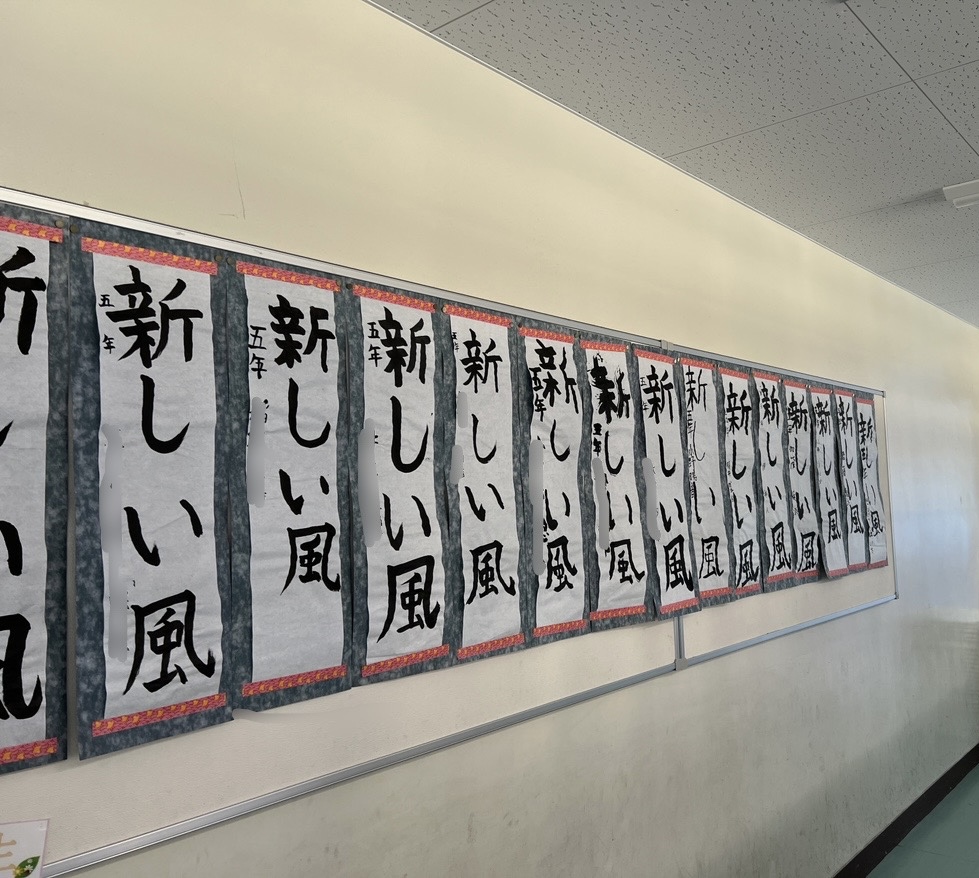 新しい風
新しい風
五年
新しい風
五年
新しい風
五年
新しい風
五年
新しい風
五年
新しい風
五年
新しい風
新しい風
新しい風
新しい風
新しい風
新しい風
新しい風
新しい風